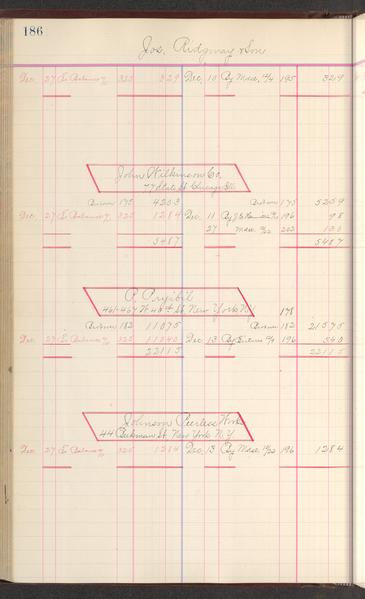 186
Jos. Ridgway & Son
Dec. 27 To Balance 325 329 Dec. 10 By Mdse. 195 3219
John Wilkinson Co.
77 State St Chicago Ill
Am't forw 175 4203 Am't forw 175 5259
Dec. 27 To Balance 325 1284 Dec. 11 By 196 98
27 Mdse. 202 130
5487 5487
P. Pryibil
461-467 W. 40th St. New York N.Y. 178
Am't forw 182 11075 Am't forw 182 21575
Dec. 27 To Balance 325 11040 Dec. 13 By 196 540
22115 22115
Johnson Peerless Works
44 Beekman St. New York N.Y.
Dec. 27 To Balance 325 1284 Dec. 13 By Mdse. 196 1284